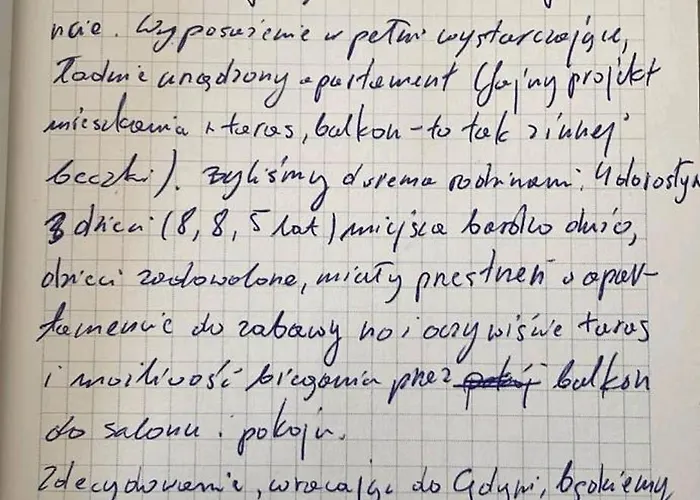 ncie. Wyposażenie w pełni wystarczające,
Ładnie urządzony apartament (fajny projekt
mieszkania + taras, balkon - to tak z innej
beczki). Byliśmy dwiema rodzinami: 4 dorosłych
3 dzieci (8, 8, 5 lat) miejsca bardzo dużo,
dzieci zadowolone, miały przestrzeń w apar-
tamencie do zabawy no i oczywiście taras
i możliwość biegania przez balkon
do salonu i pokoju.
Zdecydowanie, wracając do Gdyni, będziemy